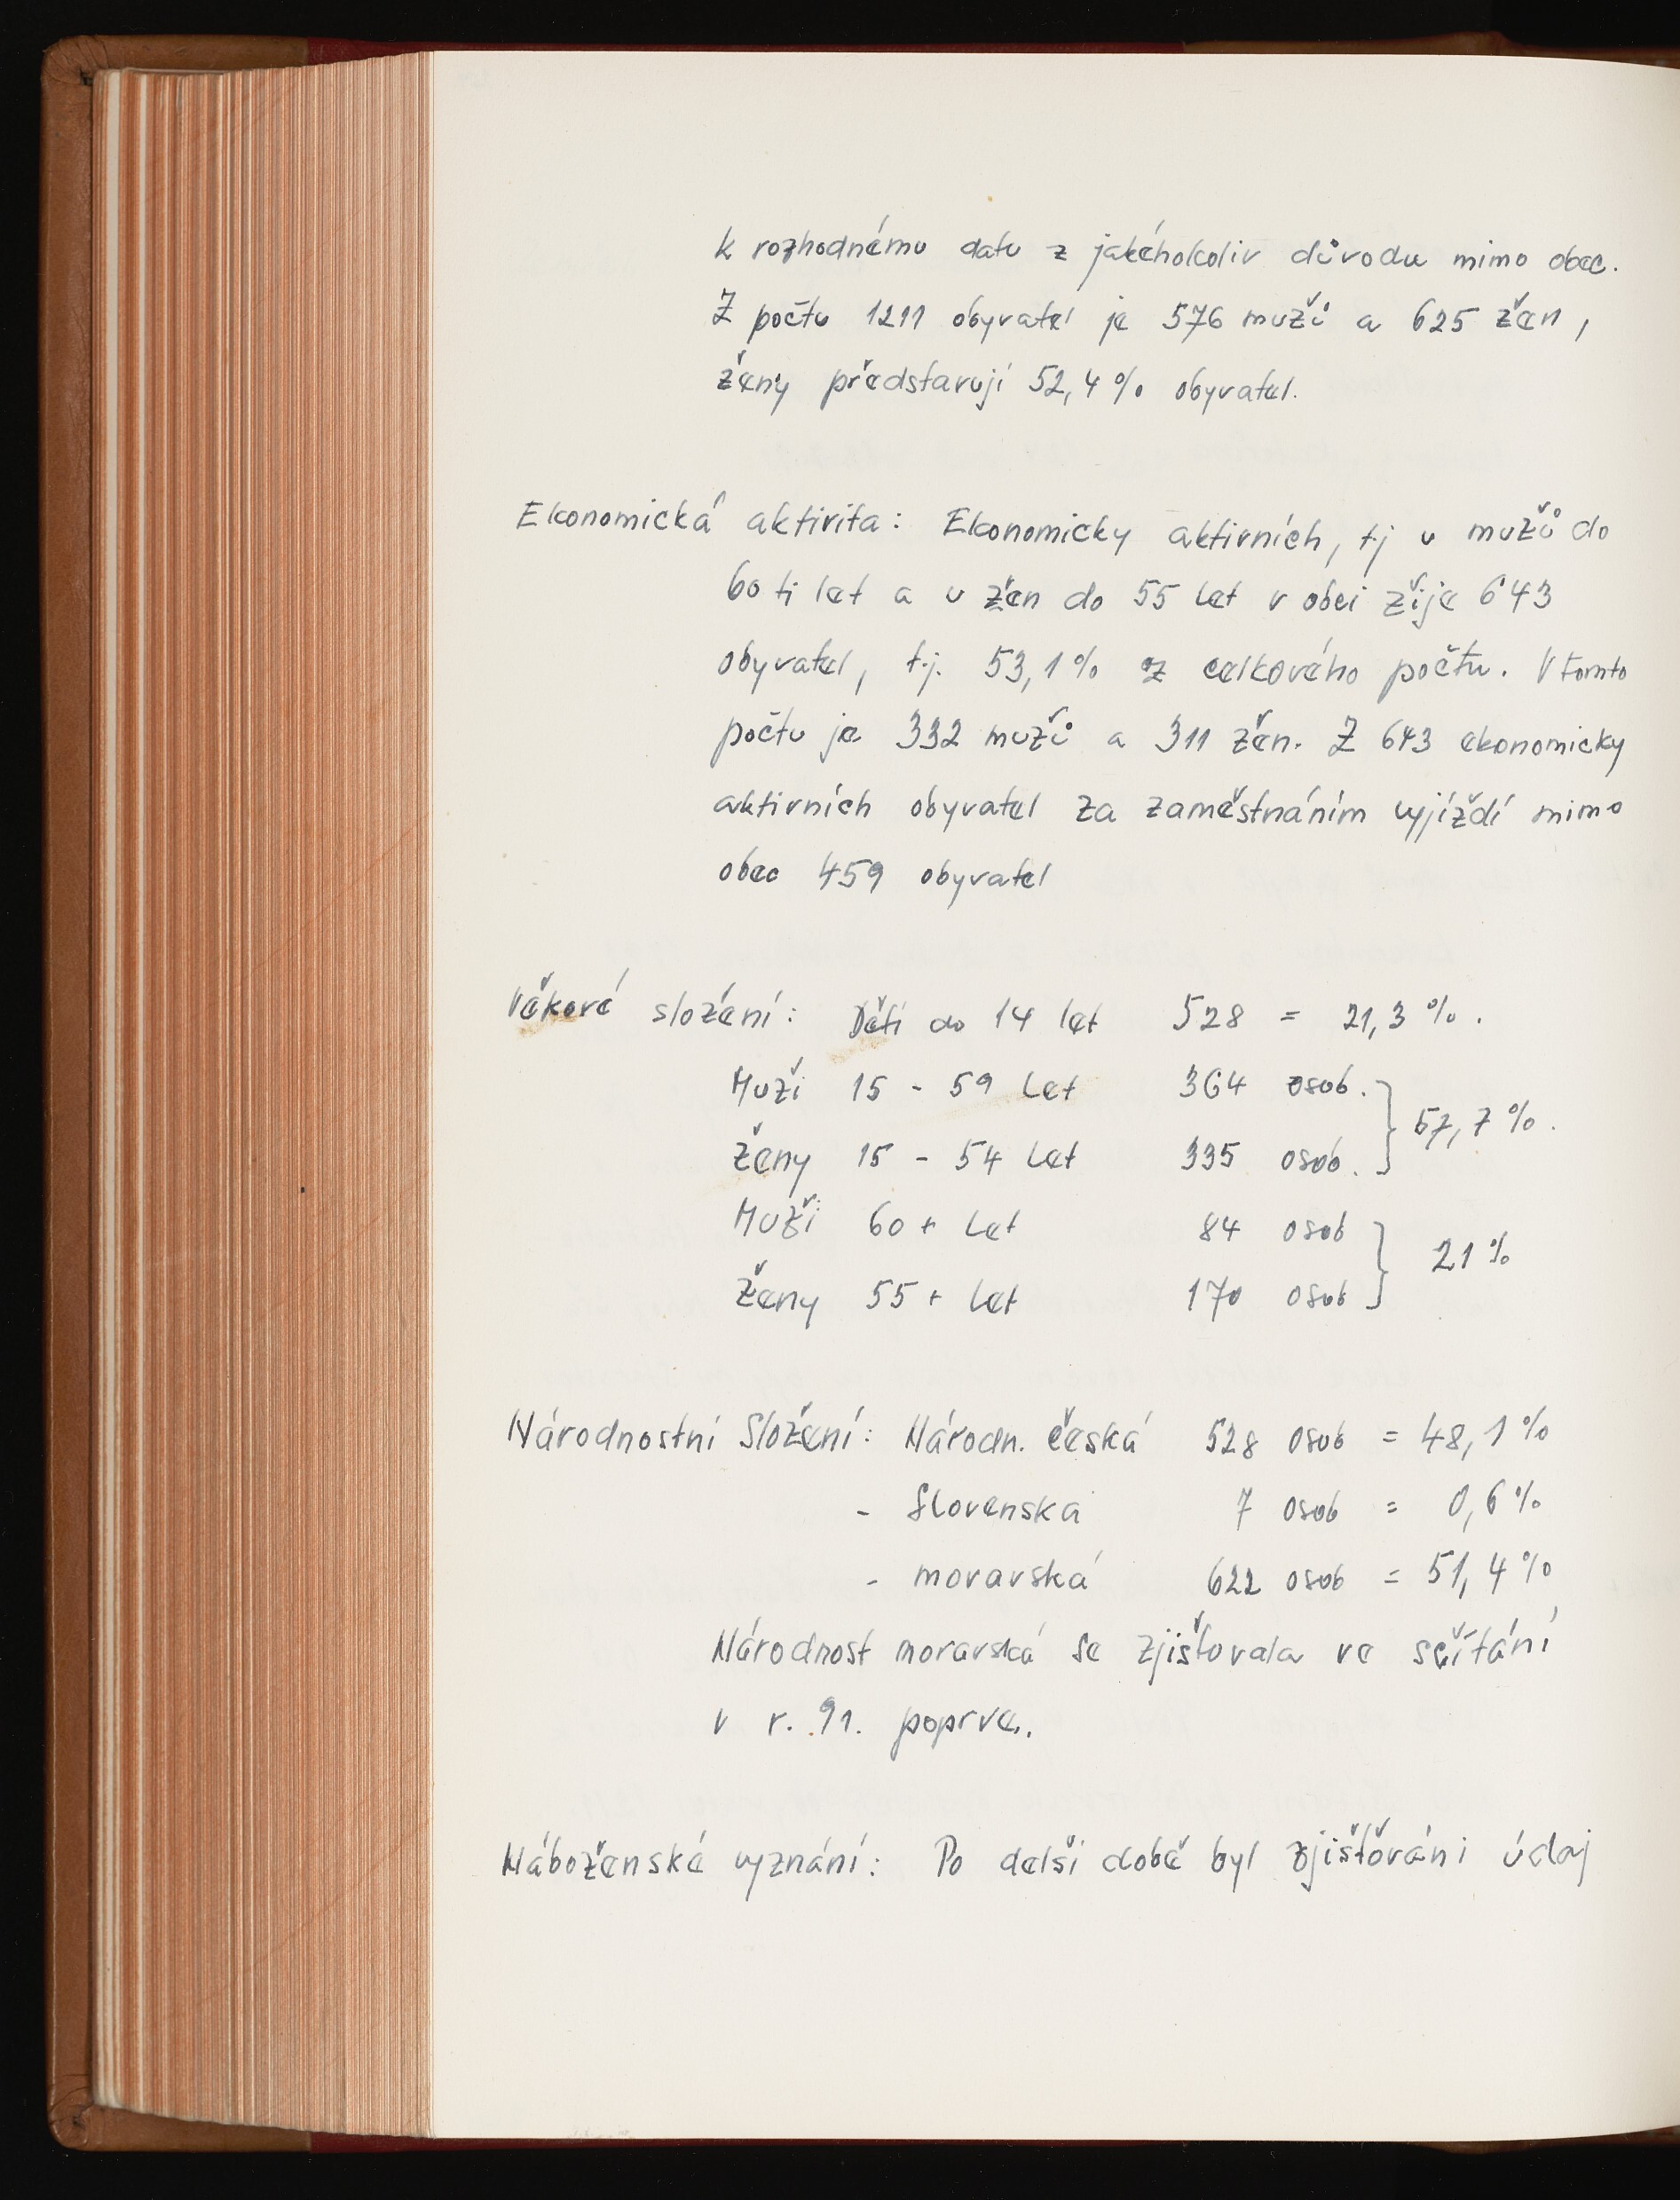 k rozhodnému datu z jakéhokoliv důvodu mimo obec.
Z počtu 1211 obyvatel je 576 mužů a 625 žen,
ženy představují 52,4% obyvatel.
Ekonomická aktivita: Ekonomicky aktivních, tj u mužů do
60 ti let a u žen do 55 let v obci žije 643
obyvatel, t.j. 53,1% z celkového počtu. V tomto
počtu je 332 mužů a 311 žen. Z 643 ekonomicky
aktivních obyvatel za zaměstnáním vyjíždí mimo
obec 459 obyvatel
Věkové složení: Děti do 14 let 528 = 21,3%.
Muži 15 - 59 let 364 osob.
57,7%.
Ženy 15 - 54 let 335 osob.
Muži 60 + let 84 osob
21%
Ženy 55 + let 170 osob
Národnostní Složení: Národn. česká 528 osob = 48,1%
- Slovenská 7 osob = 0,6%
- moravská 622 osob = 51,4%
Národnost moravská se zjišťovala ve sčítání
v r. 91. poprve.
Náboženské vyznání: Po delší době byl zjišťováni údaj